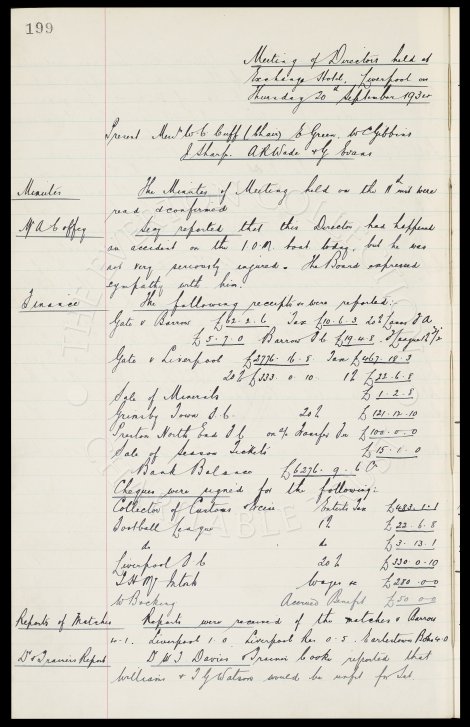 199
Meeting of Directors held at
Exchange Hotel, Liverpool on
Thursday 20th September 1934
Present Messrs W C Cuff (Chair) E Green, W C Gibbins
J Sharp. A R Wade & G Evans
Minutes The Minutes of Meeting held on the 11th inst were
read & confirmed
Mr A Coffey Secy reported that this Director had happened
an accident on the I.O.M. boat today, but he was
not very seriously injured. The Board expressed
sympathy with him.
Finance The following receipts were reported:-
Gate v Barrow £62.2.6 Tax £10.6.3 20%
£5.7.0 Barrow £19.4.8
Gate v Liverpool £2776.16.8 Tax £467.18.3
20% £333.0.10 1% £22.6.8
Sale of Minerals £1.2.8
Grimsby Town F.C. 20% £121.12.10
Preston North End F.C. on a/c Transfer £100.0.0
Sale of Season Tickets £15.1.0
Bank Balance £6276.9.6
Cheques were signed for the following:-
Collector of Customs & Excise Ents Tax £483.1.1
Football League 1% £22.6.8
do do £3.13.1
Liverpool F.C. 20% £330.0.10
T H McIntosh Wages £280.0.0
W Bocking Accrued Benefit £50.0.0
Reports of Matches Reports were received of the matches v Barrow
4-1. Liverpool 1.0 Liverpool Res 0.5. Earlestown 4-0
Dr & Trainers Report Dr W J Davies & Trainer Cooke reported that
Williams & T G Watson would be unfit for Sat.